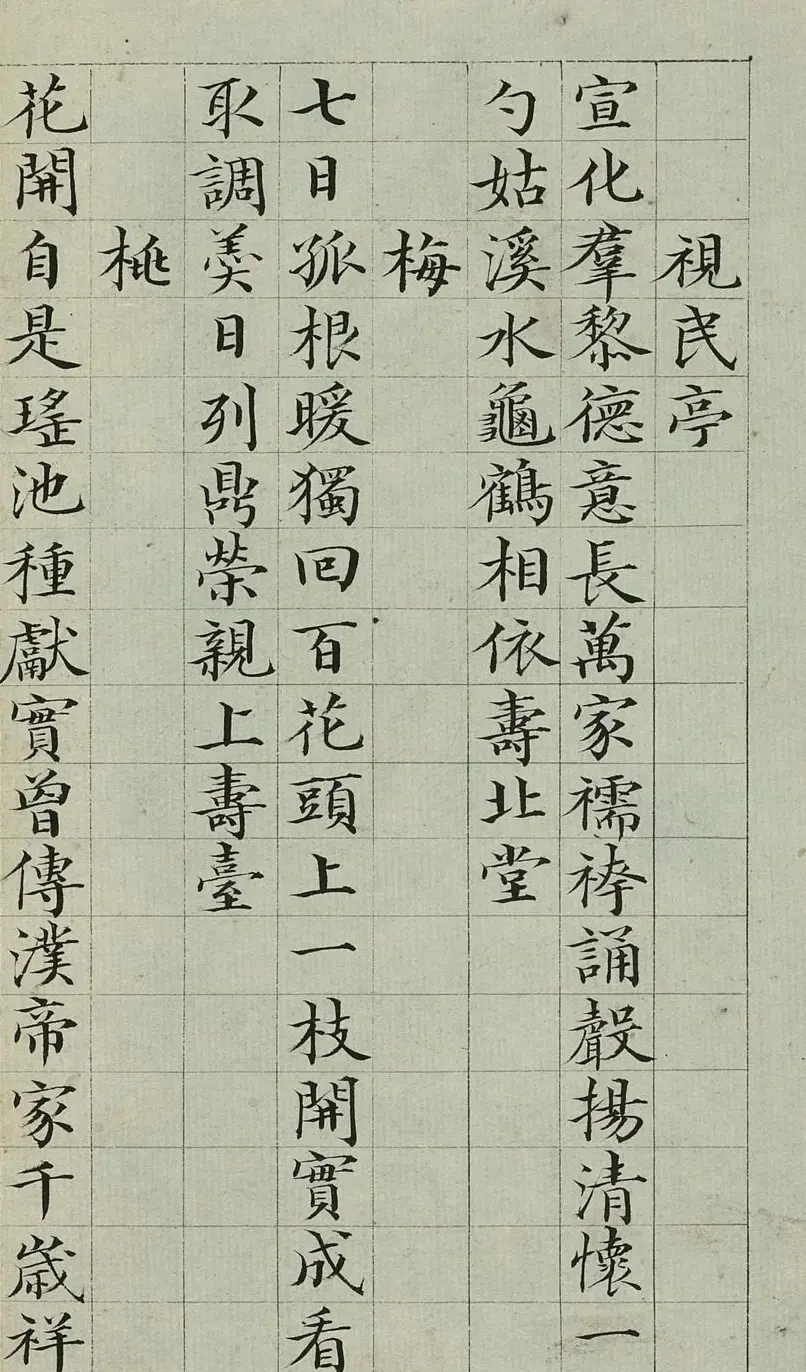 視民亭
宣化羣黎德意長萬家襦袴誦聲揚清懷一
勺姑溪水龜鶴相依壽北堂
梅
七日孤根暖獨回百花頭上一枝開實成看
取調羮日列鼎榮親上壽臺
桃
花開自是瑤池種獻實曾傳漢帝家千歲祥